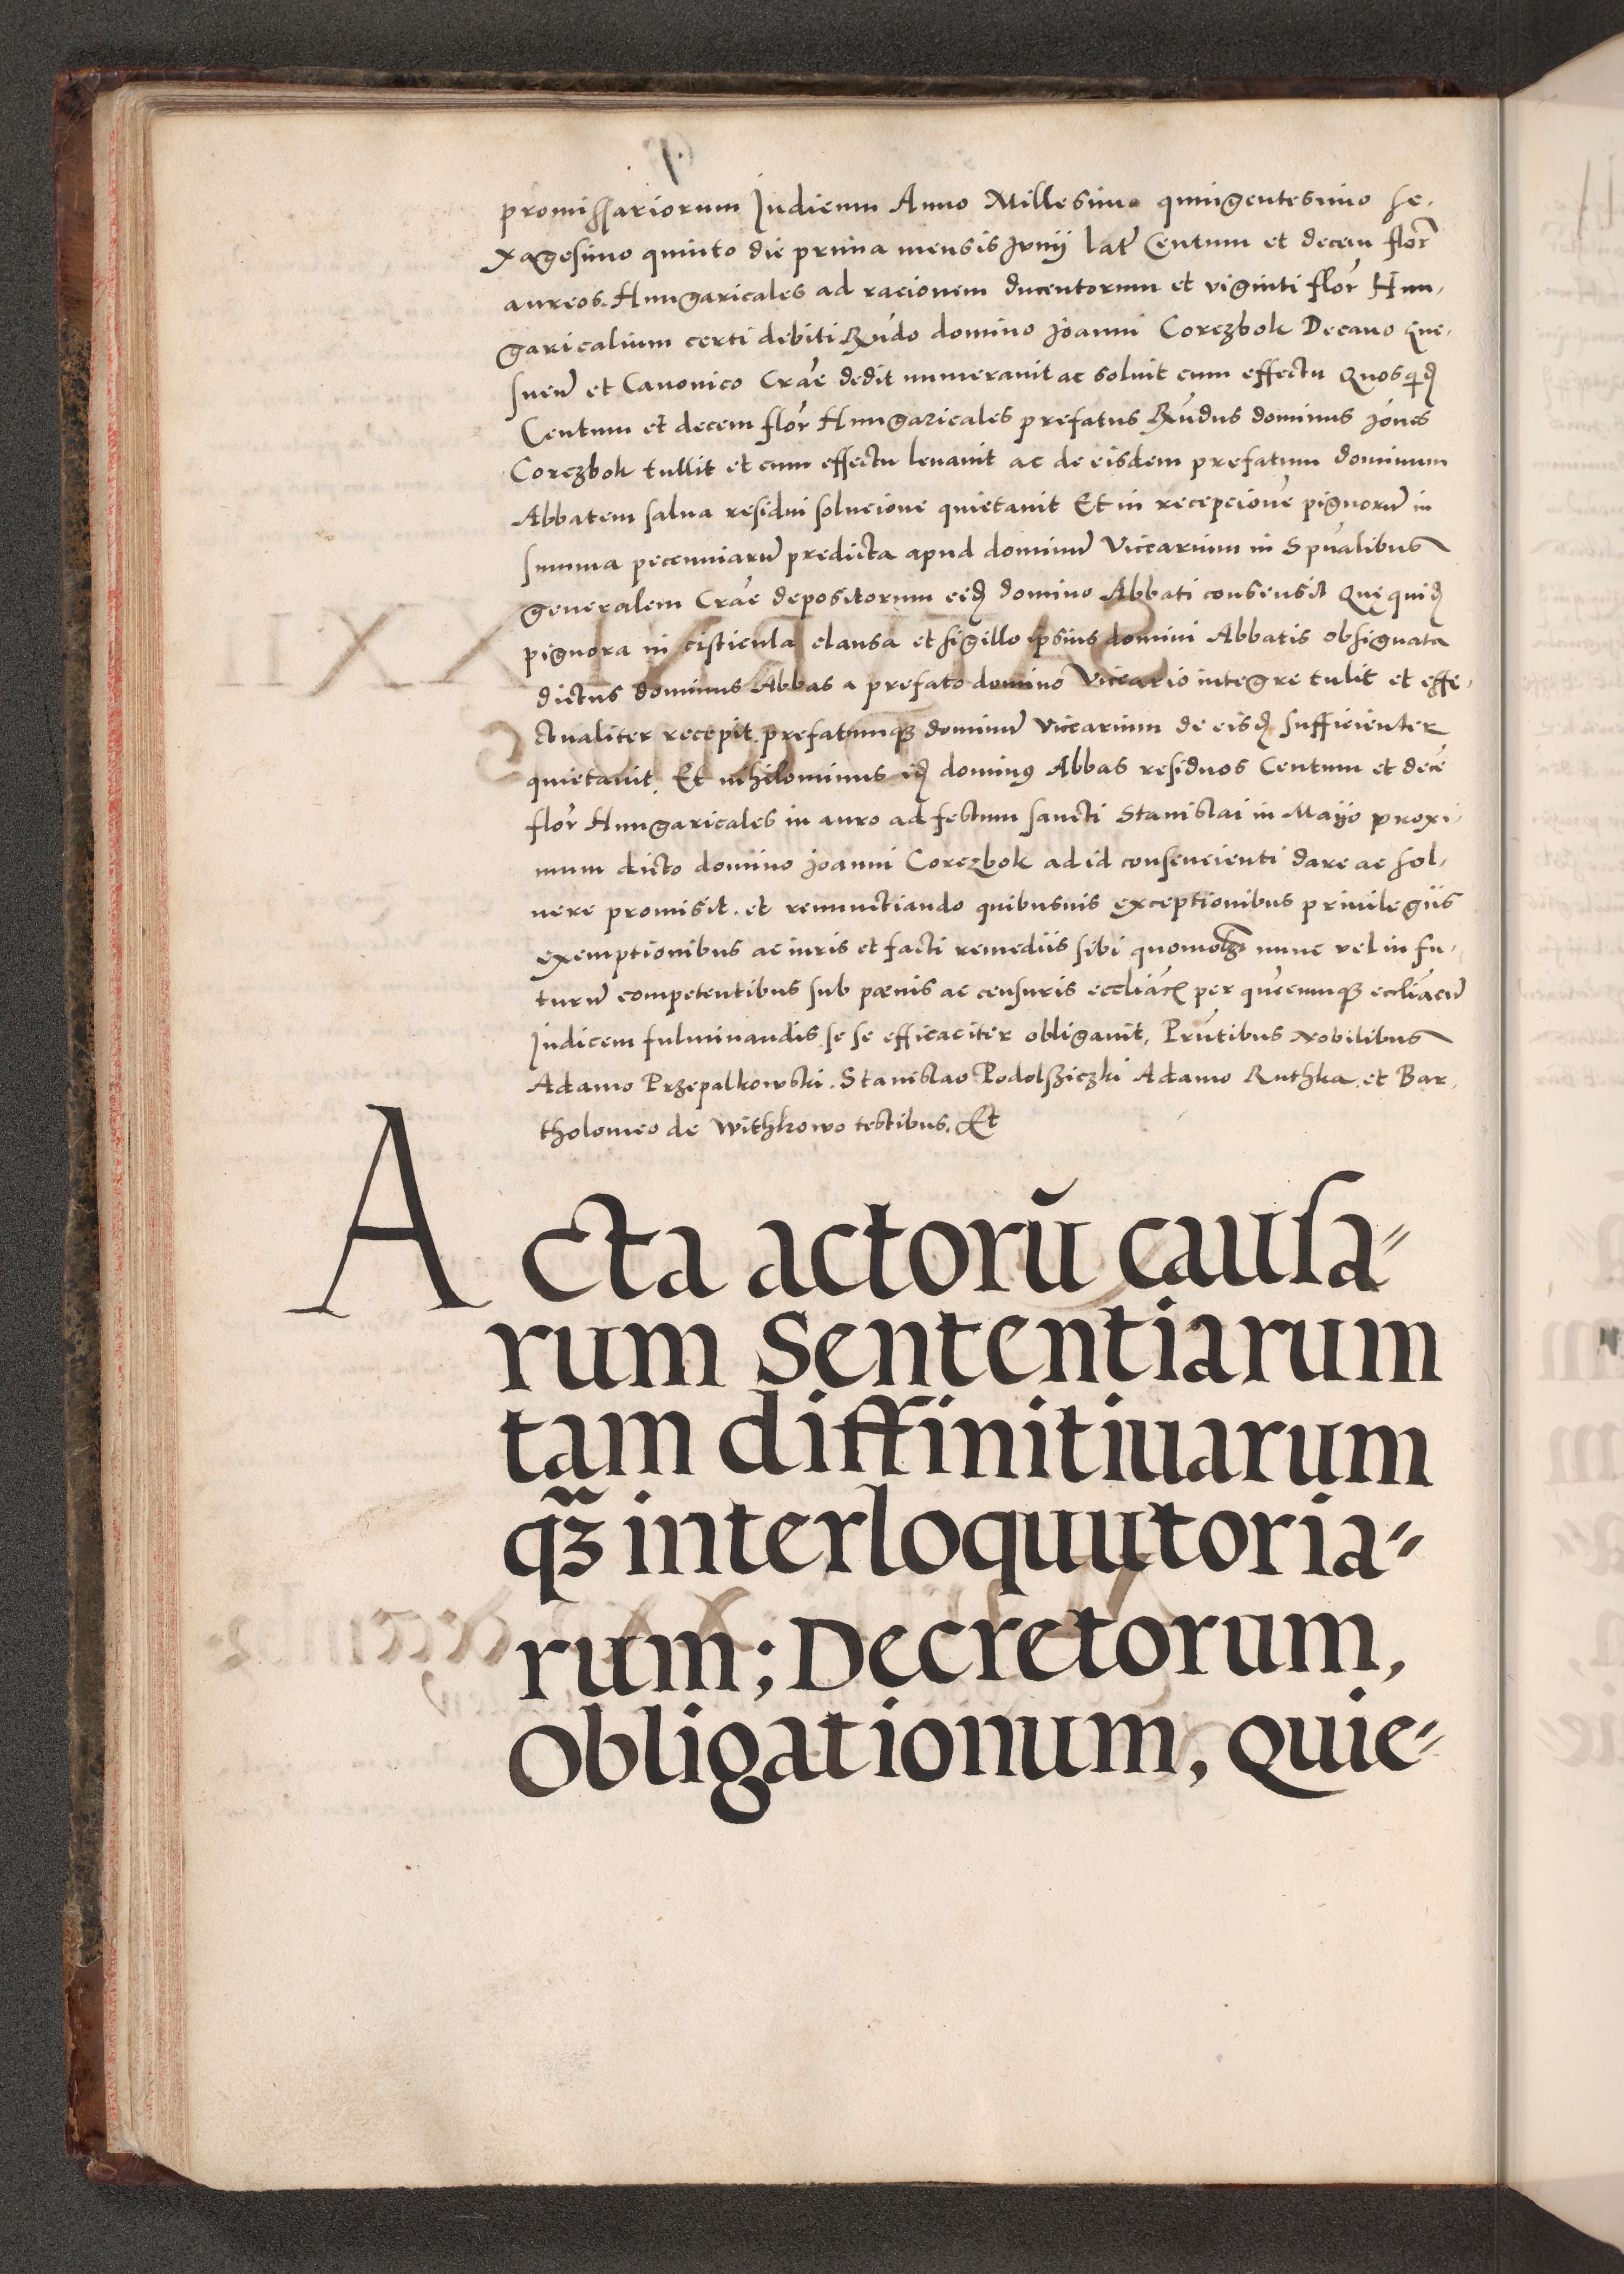 promissariorum Judicum Anno Millesimo quingentesimo se-
xagesimo quinto die prima mensis Junij lat̃ Centum et decem flor̃
aureos Hungaricales ad racionem ducentorum et viginti flor̃ Hun-
garicalium certi debiti R̃ndo domino Joanni Corczbok Decano Gne-
snen̄ et Canonico Crãe dedit numerauit ac soluit cum effectu Quos qid̄
Centum et decem flor̃ Hungaricales prefatus R̃ndus dominus Jões
Corczbok tullit et cum effectu leuauit ac de eisdem prefatum dominum
Abbatem salua residui solucione quietauit Et in recepcione pignorũ in
summa pecunniarũ predicta apud dominũ Vicearium in Spũalibus
generalem Crãe depositorum eid̄ domino Abbati consensit Que quid̄
pignora in cisticula clausa et sigillo ipsius domini Abbatis obsignata
dictus dominus Abbas a prefato domino Viceario integre tulit et effe-
ctualiter recepit. prefatumqꝫ dominũ vicearium de eisd̄ sufficienter
quietauit. Et nihilominus id̄ dominꝰ Abbas residuos Centum et decẽ
flor̃ Hungaricales in auro ad festum sancti Stanislai in Mayo proxi-
mum dicto domino Joanni Corczbok ad id consencienti dare ac sol-
uere promisit. et renunctiando quibusuis exceptionibus priuilegiis
exemptionibus ac iuris et facti remediis sibi quomolꝫ nunc vel in fu-
turũ competentibus sub pœnis ac censuris eccliãcis per quẽcumqꝫ eccliãcũ
Judicem fulminandis se se efficaciter obligauit. Prñtibus Nobilibus
Adamo Przepalkowski. Stanislao Podolssiczki Adamo Ruthka et Bar-
tholomeo de Withkowo testibus. Et
Acta actorũ causa-
rum Sententiarum
tam diffinitiuarum
qꝫ̃ interloquutoria-
rum; Decretorum,
Obligationum, Quie-